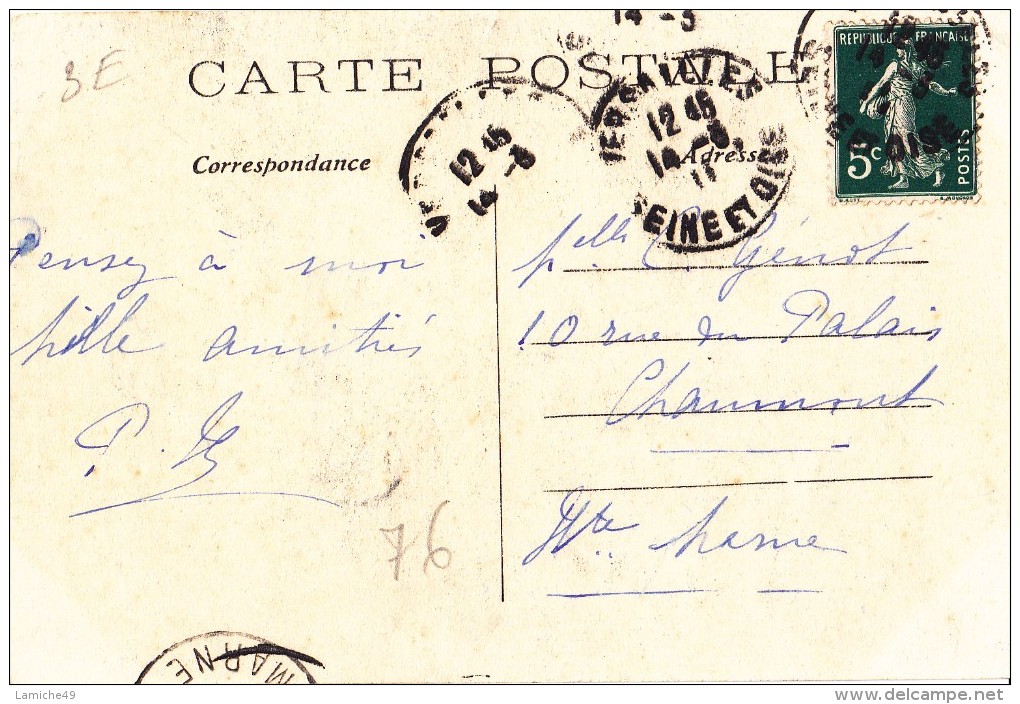 14 - 8
3E
CARTE POSTALE
12 45
14 - 8
12 45
14 - 8
11
SEINE ET OISE
REPUBLIQUE FRANCAISE
5c
POSTES
Correspondance
Adresse
Pensez à moi
Mille amitiés
Melle C. Génot
10 rue du Palais
Chaumont
Hte Marne
76
MARNE
Lamiche49
delcampe.net